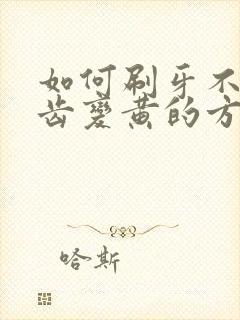 如何刷牙不
齿变黄的方
哈斯